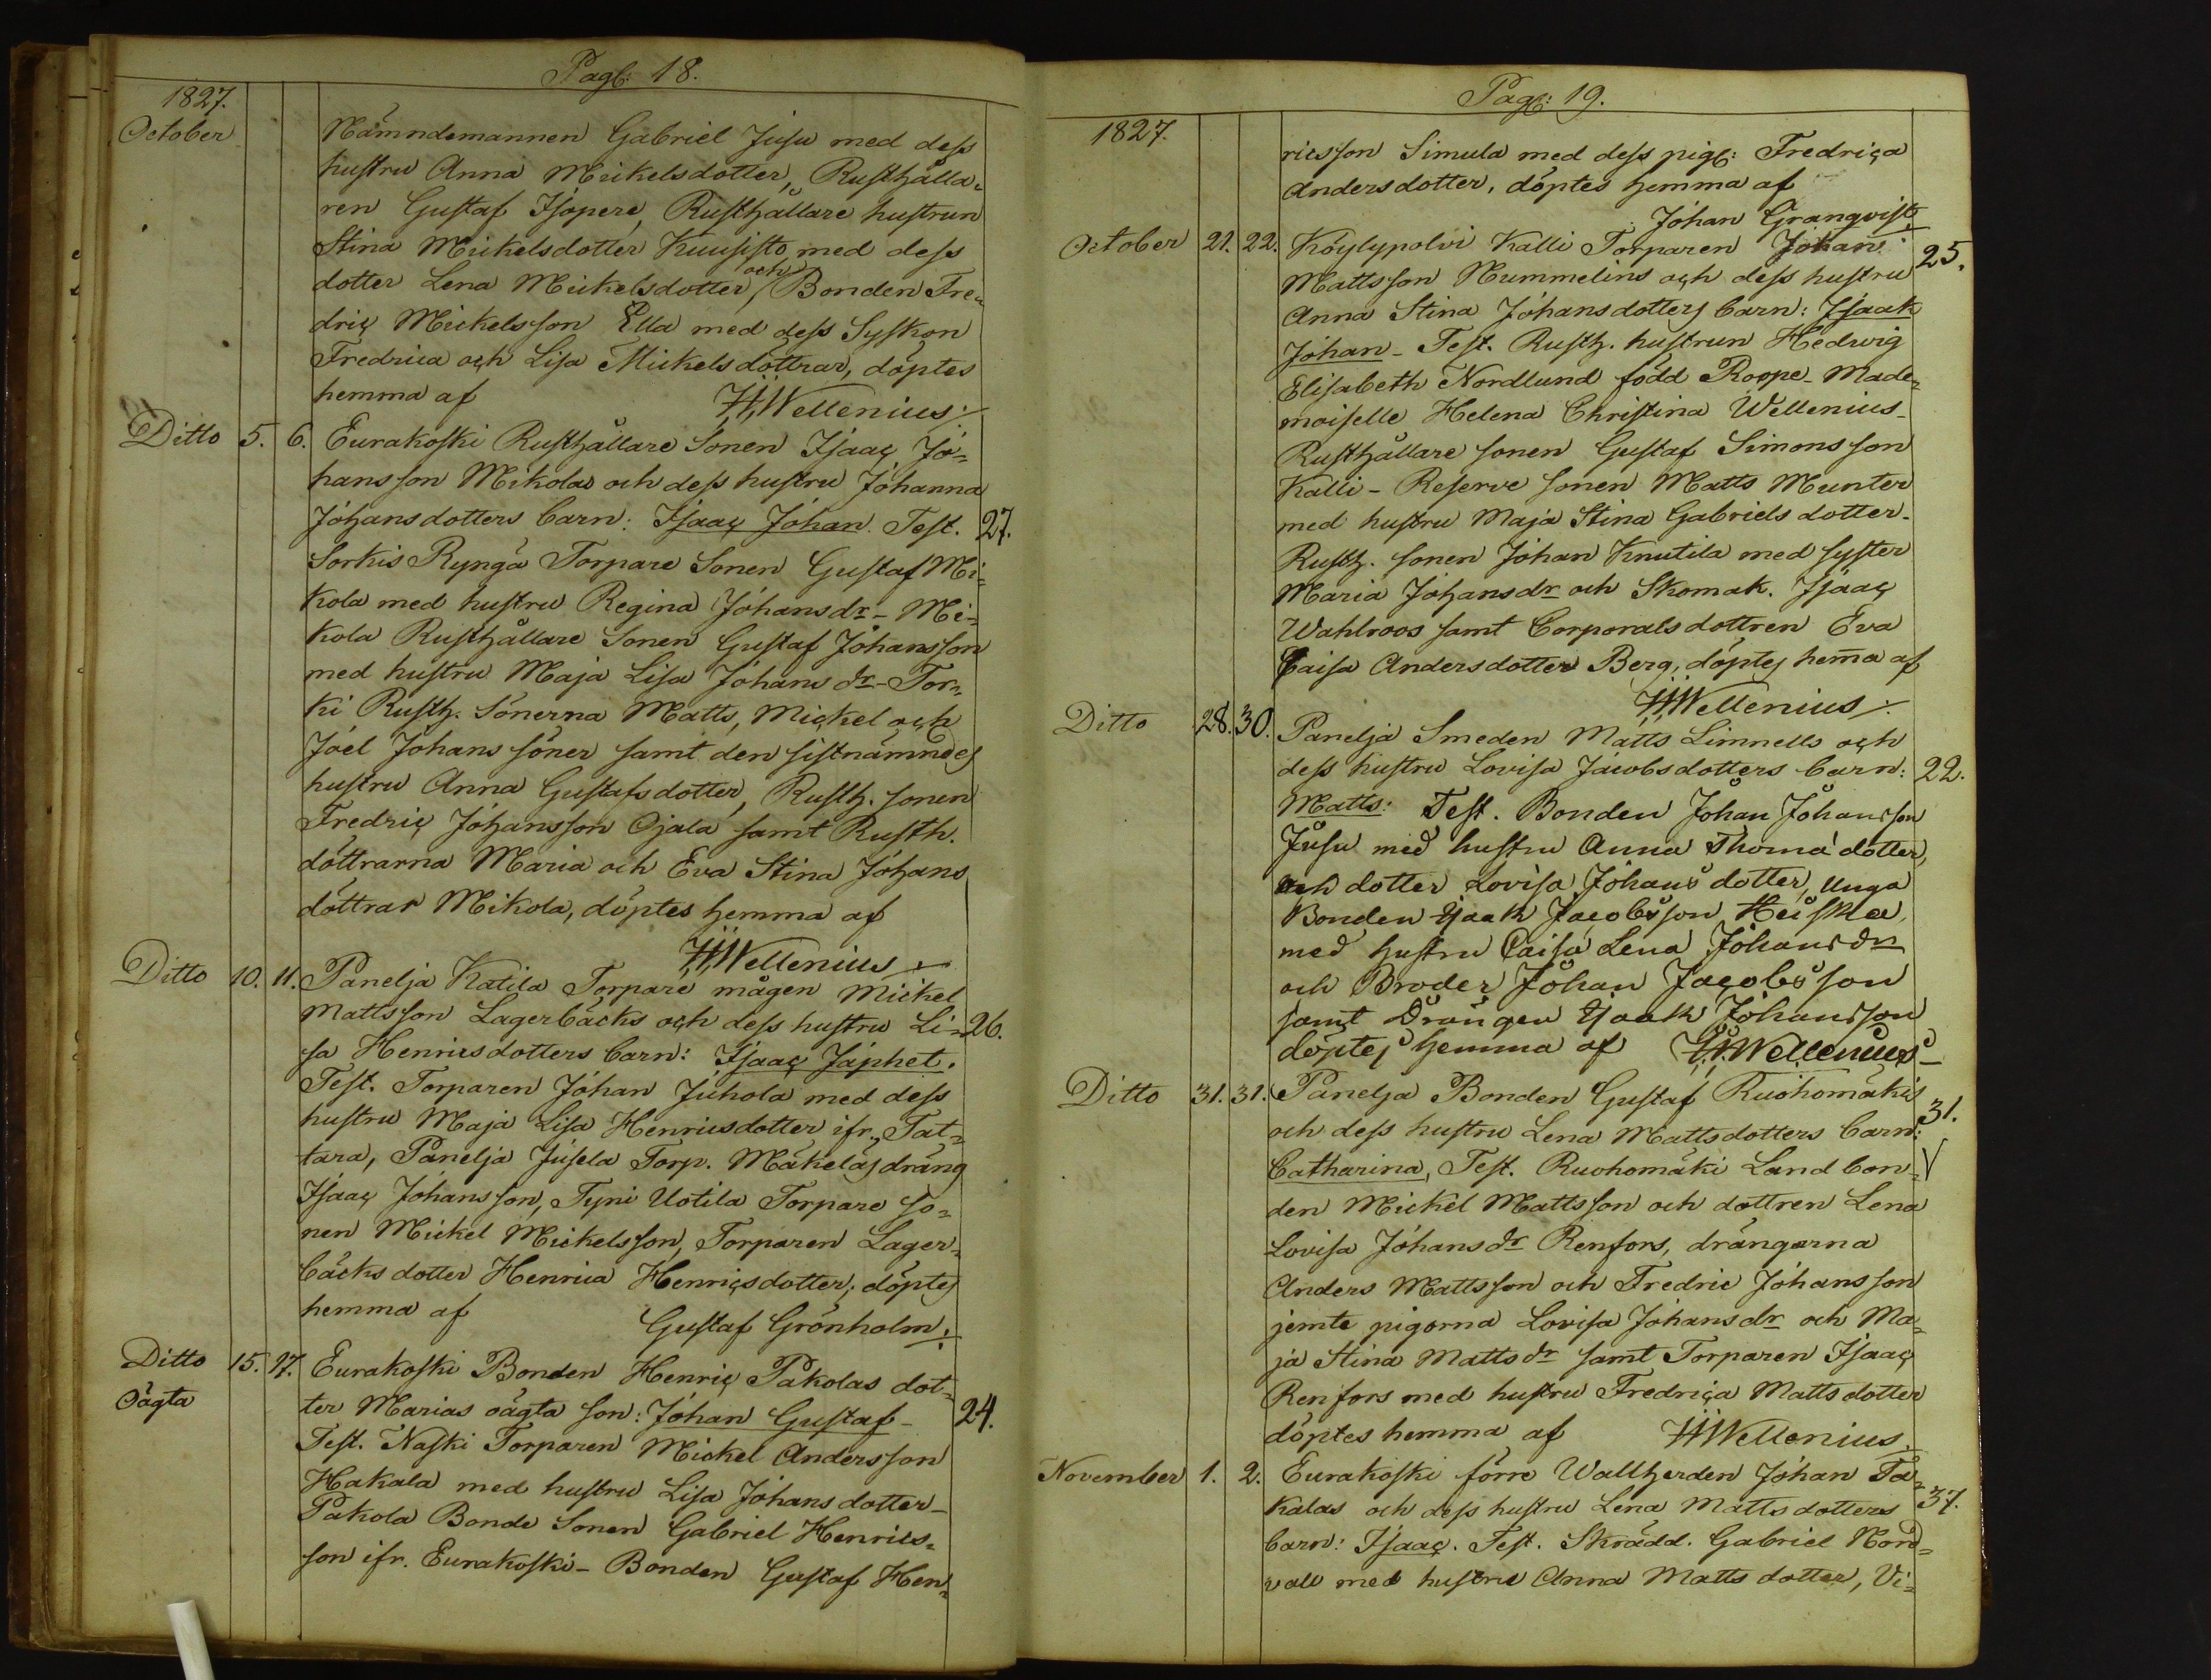 Pag: 18.
1827.
October
Nämndemannen Gabriel Jusu med dess
hustru Anna Mickelsdotter, Rusthålla-
ren Gustaf Isopere, Rusthållare hustrun
Stina Mickelsdotter Kuusisto med dess
dotter Lena Mickelsdotter, och Bonden Fre-
dric Mickelsson Ella med dess Syskon
Fredrica och Lisa Mickelsdottrar, döptes
hemma af HHWellenius
Ditto 5. 6. Eurakoski Rusthållare Sonen Isaac Jo-
hansson Mikolas och dess hustru Johanna
Johansdotters barn: Isaac Johan. Test. 27.
Sorkis Ryngä Torpare Sonen Gustaf Mi-
kola med hustru Regina Johansdr - Mi-
kola Rusthållare Sonen Gustaf Johansson
med hustru Maja Lisa Johans dr - Tor-
ki Rusth. Sönerna Matts, Mickel och
Joel Johans söner samt den sistnämndes
hustru Anna Gustafsdotter, Rusth. sonen
Fredric Johansson Ojala samt Rusth.
döttrarna Maria och Eva Stina Johans
döttrar Mikola, döptes hemma af
HHWellenius
Ditto 10. 11. Panelja Katila Torpare mågen Mickel
Mattsson Lagerbäcks och dess hustru Li- 26.
sa Henricsdotters barn: Isaac Japhet.
Test. Torparen Johan Juhola med dess
hustru Maja Lisa Henricsdotter ifr. Tat-
tara, Panelja Jusela Torp. Mäkeläs dräng
Isaac Johansson, Tyni Uotila Torpare so-
nen Mickel Mickelsson, Torparen Lager-
bäcks dotter Henrica Henricsdotter; döptes
hemma af Gustaf Grönholm.
Ditto 15. 17. Eurakoski Bonden Henric Pakolas dot-
Oägta
ter Marias oägta son: Johan Gustaf - 24.
Test. Naski Torparen Mickel Andersson
Hakala med hustru Lisa Johansdotter -
Pakola Bonde Sonen Gabriel Henrics-
son ifr. Eurakoski - Bonden Gustaf Hen-
Pag: 19.
1827.
ricsson Simula med dess pig: Fredrica
Andersdotter, döptes hemma af
Johan Granqvist.
October 21. 22. Köylypolvi Kalli Torparen Johan 25.
Mattsson Nummelins och dess hustru
Anna Stina Johansdotters barn: Isaak
Johan - Test. Rusth. hustrun Hedwig
Elisabeth Nordlund född Roope - Made-
moiselle Helena Christina Wellenius -
Rusthållare sonen Gustaf Simonsson
Kalli - Reserve sonen Matts Munter
med hustru Maja Stina Gabriels dotter -
Rusth. sonen Johan Knutila med syster
Maria Johansdr och Skomak. Isaac
Wahlroos samt Corporals dottren Eva
Caisa Andersdotter Berg, döptes hemma af
HHWellenius
Ditto 28. 30. Panelja Smeden Matts Limnells och
dess hustru Lovisa Jacobsdotters barn: 22.
Matts: Test. Bonden Johan Johansson
Jusu med hustru Anna Thomä dotter,
och dotter Lovisa Johans dotter, unga
Bonden Isaak Jacobsson Heiskla,
med hustru Caisa Lena Johansdr
och Broder Johan Jacobsson
samt Drängen Isaak Johansson
döptes hemma af HHWellenius
Ditto 31. 31. Panelja Bonden Gustaf Ruohomäkis
och dess hustru Lena Mattsdotters barn: 31.
Catharina, Test. Ruohomäki Land bon-
den Mickel Mattsson och dottren Lena
Lovisa Johansdr Renfors, drängarna
Anders Mattsson och Fredric Johansson
jemte pigorna Lovisa Johansdr och Ma-
ja Stina Mattsdr samt Torparen Isaac
Renfors med hustru Fredrica Mattsdotter
döptes hemma af HHWellenius
November 1. 2. Eurakoski förre Wallherden Johan Ta-
kalas och dess hustru Lena Mattsdotters 37.
barn: Isaac. Test. Skrädd. Gabriel Nord-
vall med hustru Anna Matts dotter, Vi-